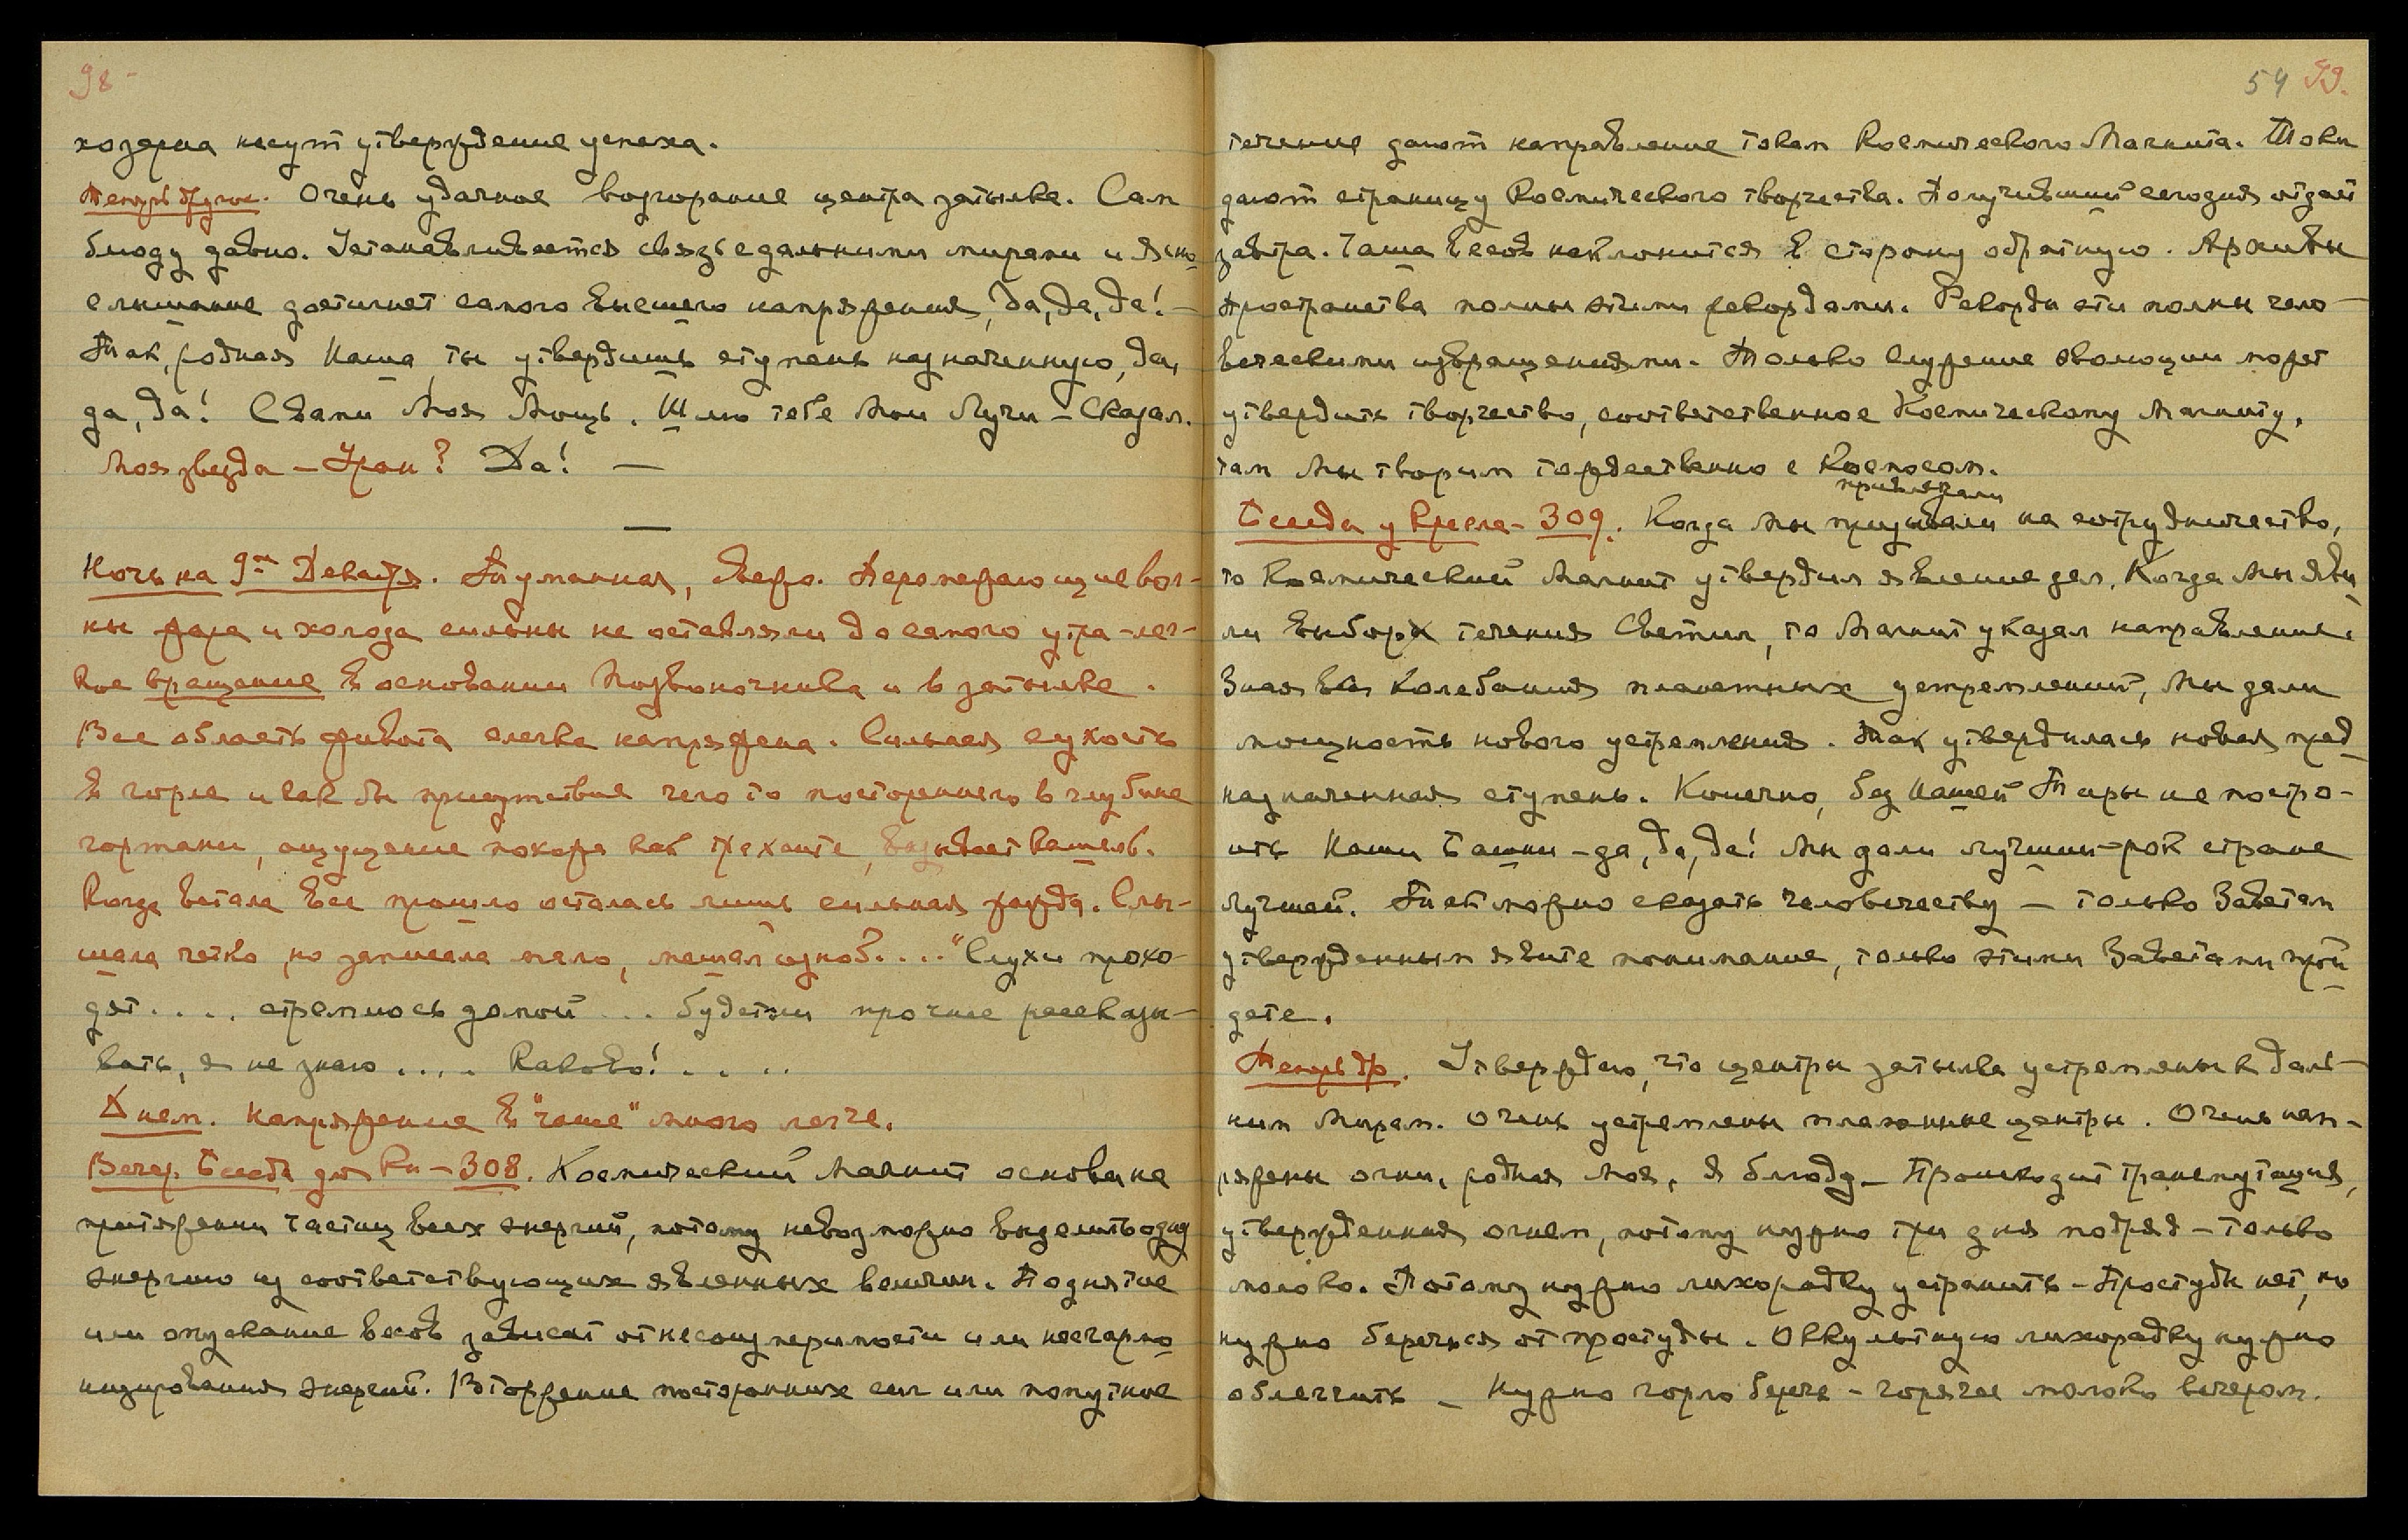 98-
хозерна несут утверждение успеха.
Теперь другое. Очень удачное возгорание центра затылка. Сам
блюду давно. Устанавливается связь с дальними мирами и ясно
слышание достигнет самого высшего напряжения, да, да, да! —
Так, родная Наша, ты утвердишь ступень назначенную, да,
да, да! С вами Моя Мощь. Шлю тебе Мои Лучи – Сказал.
Моя звезда – Уран? Да! —
—
Ночь на 9ое Декабря. Туманная, 
ны жара и холода сильны не оставляли до самого утра – лег-
кое вращение в основании позвоночника и в затылке.
Вся область живота слегка напряжена. Сильная сухость
в горле и как бы присутствие чего то постороннего в глубине
гортани, ощущение пожара как трахеите, вызывает кашель.
Когда встала все прошло осталась лишь сильная жажда. Слы-
шала четко, но записала мало, мешал озноб.... "Слухи прохо-
дят .... стремлюсь домой ... будет ли прочие рассказы-
вать, я не знаю .... Каково! . . . .
Днем. Напряжение в "чаше" много легче.
Вечер. Беседа для Кн – 308. Космический Магнит основан на
притяжении частиц всех энергий, потому невозможно выделить одну
энергию из соответствующих явленных величин. Поднятие
или опускание весов зависит от несоизмеримости или несгармо
низирования энергий. Вторжение посторонних сил или попутное
54 99.
течение дают направление токам Космического Магнита. Токи
дают страницу Космического творчества. Получивший сегодня отдает
завтра. Чаша весов наклонится в сторону обратную. Архивы
пространства полны этими рекордами. Рекорды эти полны чело-
веческими извращениями. Только служение эволюции может
утвердить творчество, соответственное Космическому Магниту,
там Мы творим тождественно с Космосом.
привлекали
Беседа у Кресла – 309. Когда Мы призывали на сотрудничество,
то Космический Магнит утвердил явление дел. Когда Мы яви
ли выбор течения Светил, то Магнит указал направление.
Зная все колебания планетных устремлений, Мы дали
мощность нового устремления. Так утвердилась новая пред
назначенная ступень. Конечно, без Нашей Тары не постро-
ить Наши Башни – да, да, да! Мы дали лучший рок стране
лучшей. Так можно сказать человечеству – только Заветам
утвержденным явите понимание, только этими Заветами прой
дете.
Теперь др. Утверждаю, что центры затылка устремлены к даль-
ним Мирам. Очень устремлены пламенные центры. Очень нап-
ряжены огни, родная Моя, Я блюду – Происходит трансмутация,
утвержденная огнем, потому нужно три дня подряд – только
молоко. Потому нужно лихорадку устранить – Простуды нет, но
нужно беречься от простуды. Оккультную лихорадку нужно
облегчить – Нужно горло беречь – горячее молоко вечером.